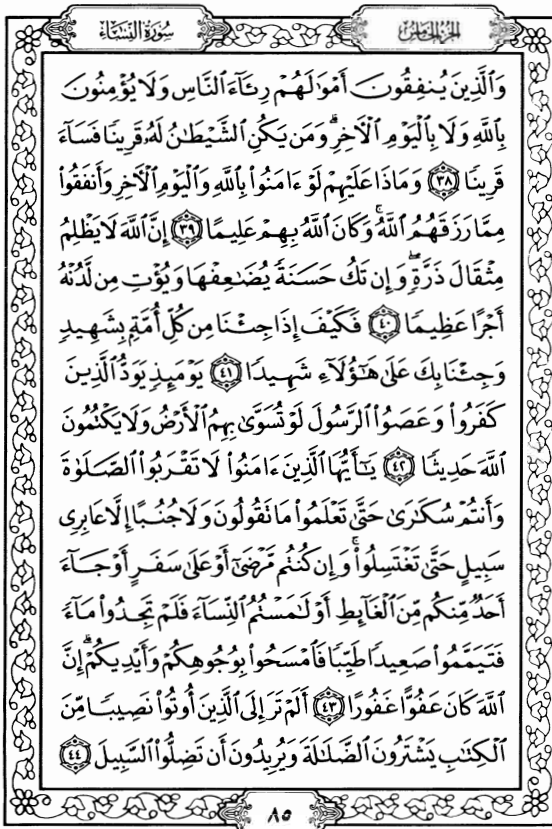 سُورَةُ النِّسَاءِ
الجُزْءُ الخَامِسُ
وَٱلَّذِينَ يُنفِقُونَ أَمْوَٰلَهُمْ رِئَآءَ ٱلنَّاسِ وَلَا يُؤْمِنُونَ
بِٱللَّهِ وَلَا بِٱلْيَوْمِ ٱلْأَخِرِ ۗ وَمَن يَكُنِ ٱلشَّيْطَٰنُ لَهُۥ قَرِينًا فَسَآءَ
قَرِينًا ٣٨ وَمَاذَا عَلَيْهِمْ لَوْ ءَامَنُوا۟ بِٱللَّهِ وَٱلْيَوْمِ ٱلْأَخِرِ وَأَنفَقُوا۟
مِمَّا رَزَقَهُمُ ٱللَّهُ ۚ وَكَانَ ٱللَّهُ بِهِمْ عَلِيمًا ٣٩ إِنَّ ٱللَّهَ لَا يَظْلِمُ
مِثْقَالَ ذَرَّةٍ ۖ وَإِن تَكُ حَسَنَةً يُضَٰعِفْهَا وَيُؤْتِ مِن لَّدُنْهُ
أَجْرًا عَظِيمًا ٤٠ فَكَيْفَ إِذَا جِئْنَا مِن كُلِّ أُمَّةٍۭ بِشَهِيدٍ
وَجِئْنَا بِكَ عَلَىٰ هَٰٓؤُلَآءِ شَهِيدًا ٤١ يَوْمَئِذٍ يَوَدُّ ٱلَّذِينَ
كَفَرُوا۟ وَعَصَوُا۟ ٱلرَّسُولَ لَوْ تُسَوَّىٰ بِهِمُ ٱلْأَرْضُ وَلَا يَكْتُمُونَ
ٱللَّهَ حَدِيثًا ٤٢ يَٰٓأَيُّهَا ٱلَّذِينَ ءَامَنُوا۟ لَا تَقْرَبُوا۟ ٱلصَّلَوٰةَ
وَأَنتُمْ سُكَٰرَىٰ حَتَّىٰ تَعْلَمُوا۟ مَا تَقُولُونَ وَلَا جُنُبًا إِلَّا عَابِرِى
سَبِيلٍ حَتَّىٰ تَغْتَسِلُوا۟ ۚ وَإِن كُنتُم مَّرْضَىٰٓ أَوْ عَلَىٰ سَفَرٍ أَوْ جَآءَ
أَحَدٌ مِّنكُم مِّنَ ٱلْغَآئِطِ أَوْ لَٰمَسْتُمُ ٱلنِّسَآءَ فَلَمْ تَجِدُوا۟ مَآءً
فَتَيَمَّمُوا۟ صَعِيدًا طَيِّبًا فَٱمْسَحُوا۟ بِوُجُوهِكُمْ وَأَيْدِيكُمْ ۗ إِنَّ
ٱللَّهَ كَانَ عَفُوًّا غَفُورًا ٤٣ أَلَمْ تَرَ إِلَى ٱلَّذِينَ أُوتُوا۟ نَصِيبًا مِّنَ
ٱلْكِتَٰبِ يَشْتَرُونَ ٱلضَّلَٰلَةَ وَيُرِيدُونَ أَن تَضِلُّوا۟ ٱلسَّبِيلَ ٤٤
٨٥